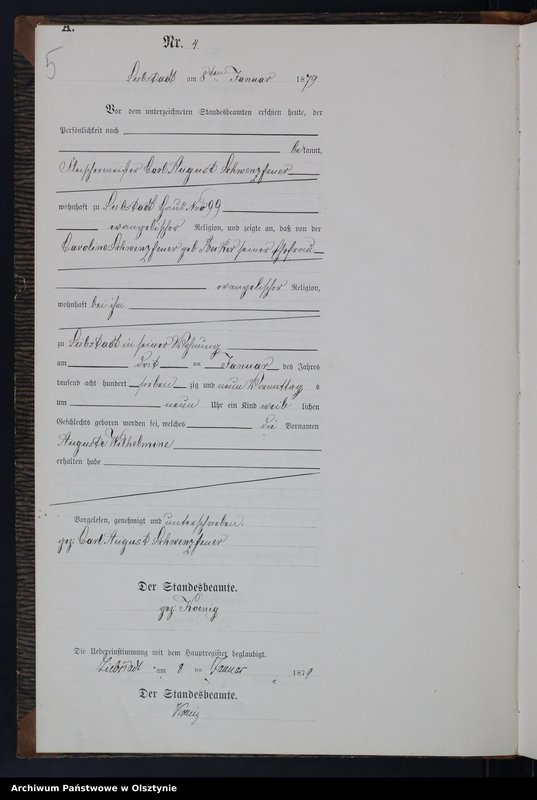 A.
5
Nr. 4
Liebstadt am 8ten Januar 1879
Vor dem unterzeichneten Standesbeamten erschien heute, der
Persönlichkeit nach
bekannt,
Fleischermeister Carl August Schwenzfeuer
wohnhaft zu Liebstadt Haus Nro 99
evangelischer Religion, und zeigte an, daß von der
Caroline Schwenzfeuer geb. Becker seiner Ehefrau
evangelischer Religion,
wohnhaft bei ihm
zu Liebstadt in seiner Wohnung
am drei ten Januar des Jahres
tausend acht hundert sieben zig und neun Vormittag s
um neun Uhr ein Kind weib lichen
Geschlechts geboren worden sei, welches die Vornamen
Auguste Wilhelmine
erhalten habe
Vorgelesen, genehmigt und unterschrieben.
gez. Carl August Schwenzfeuer
Der Standesbeamte.
gez. Koenig
Die Uebereinstimmung mit dem Hauptregister beglaubigt.
Liebstadt am 8 ten Januar 1879
Der Standesbeamte.
Koenig
Archiwum Państwowe w Olsztynie